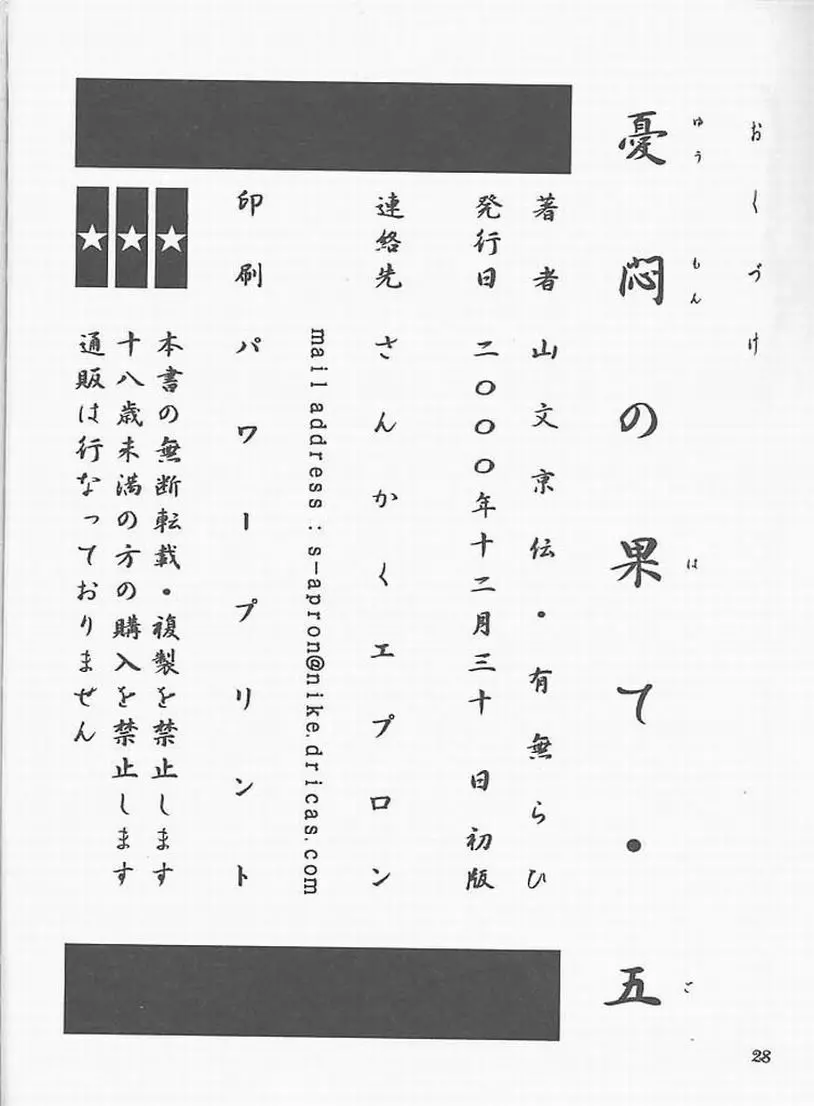 おくづけ
憂悶の果て・五
ゆうもん は ご
著者 山文京伝・有無らひ
発行日 二〇〇〇年十二月三十日初版
連絡先 さんかくエプロン
mail address : s-apron@nike.dricas.com
印刷 パワープリント
★ 本書の無断転載・複製を禁止します
★ 十八歳未満の方の購入を禁止します
★ 通販は行なっておりません
28